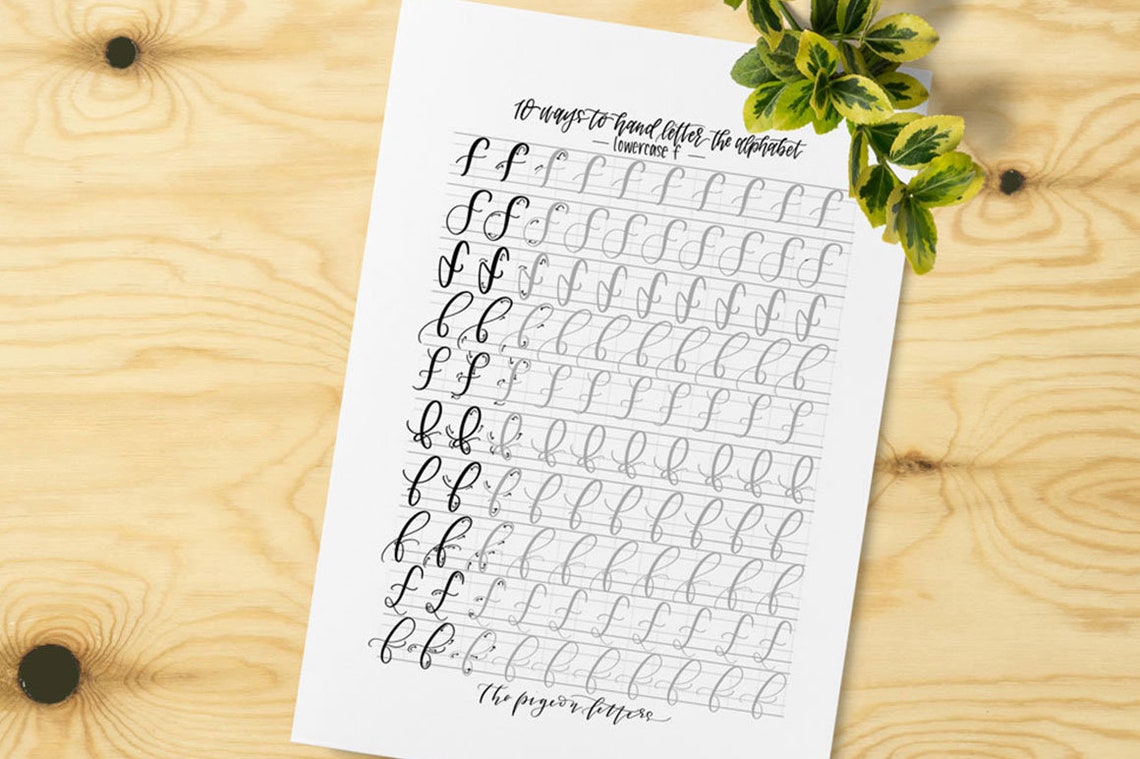 10 ways to hand letter the alphabet
— lowercase f —
f f f f f f f f f f
f f f f f f f f f f
f f f f f f f f f f
f f f f f f f f f f
f f f f f f f f f f
f f f f f f f f f f
f f f f f f f f f f
f f f f f f f f f f
f f f f f f f f f f
f f f f f f f f f f
the pigeon letters